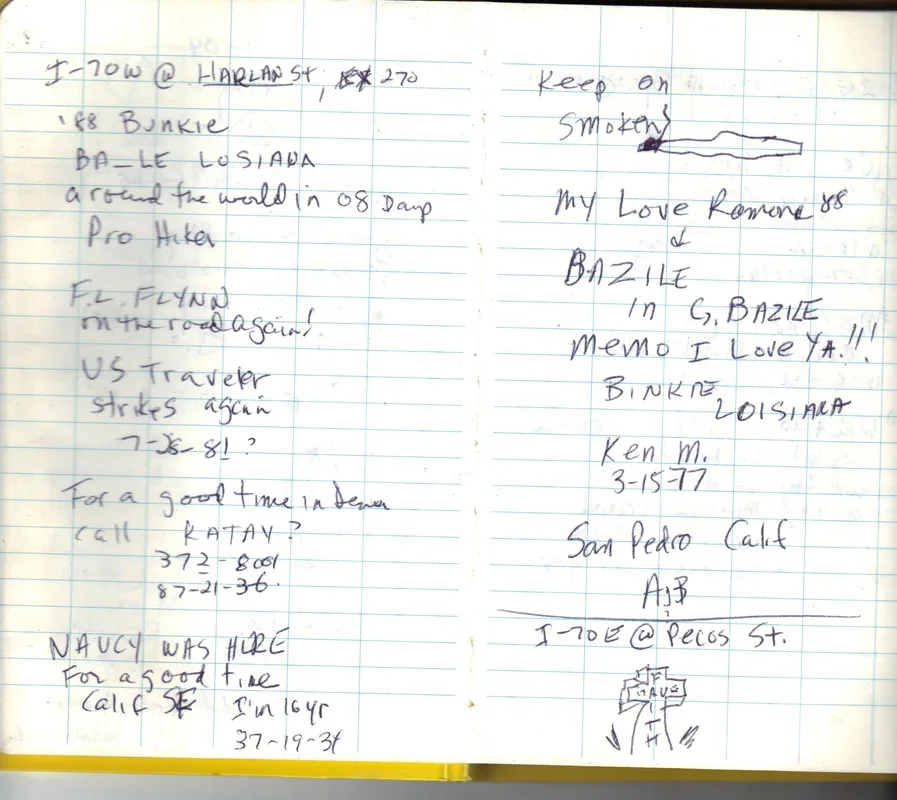 I-70W @ HARLAN St, 270
'88 Bunkie
BA_LE LOSIANA
around the world in 08 Days
Pro Hiker
F.L. FLYNN
on the road again!
US Traveler
strikes again
7-28-81?
For a good time in Denver
call KATAY?
372-8001
87-21-36.
NAUCY WAS HERE
For a good time
Calif SF I'm 16 yr
37-19-34
Keep on
Smoken
My Love Ramona 88
&
BAZILE
in G. BAZILE
Memo I Love YA.!!!
BINKIE
LOISIANA
Ken M.
3-15-77
San Pedro Calif
AJB
I-70E @ Pecos St.